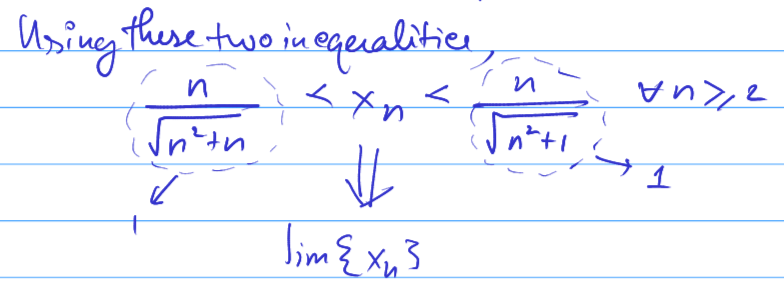 Using these two inequalities,
n/√(n²+n) < xₙ < n/√(n²+1) ∀ n ≥ 2
↙ 1 ⇓ → 1
lim{xₙ}